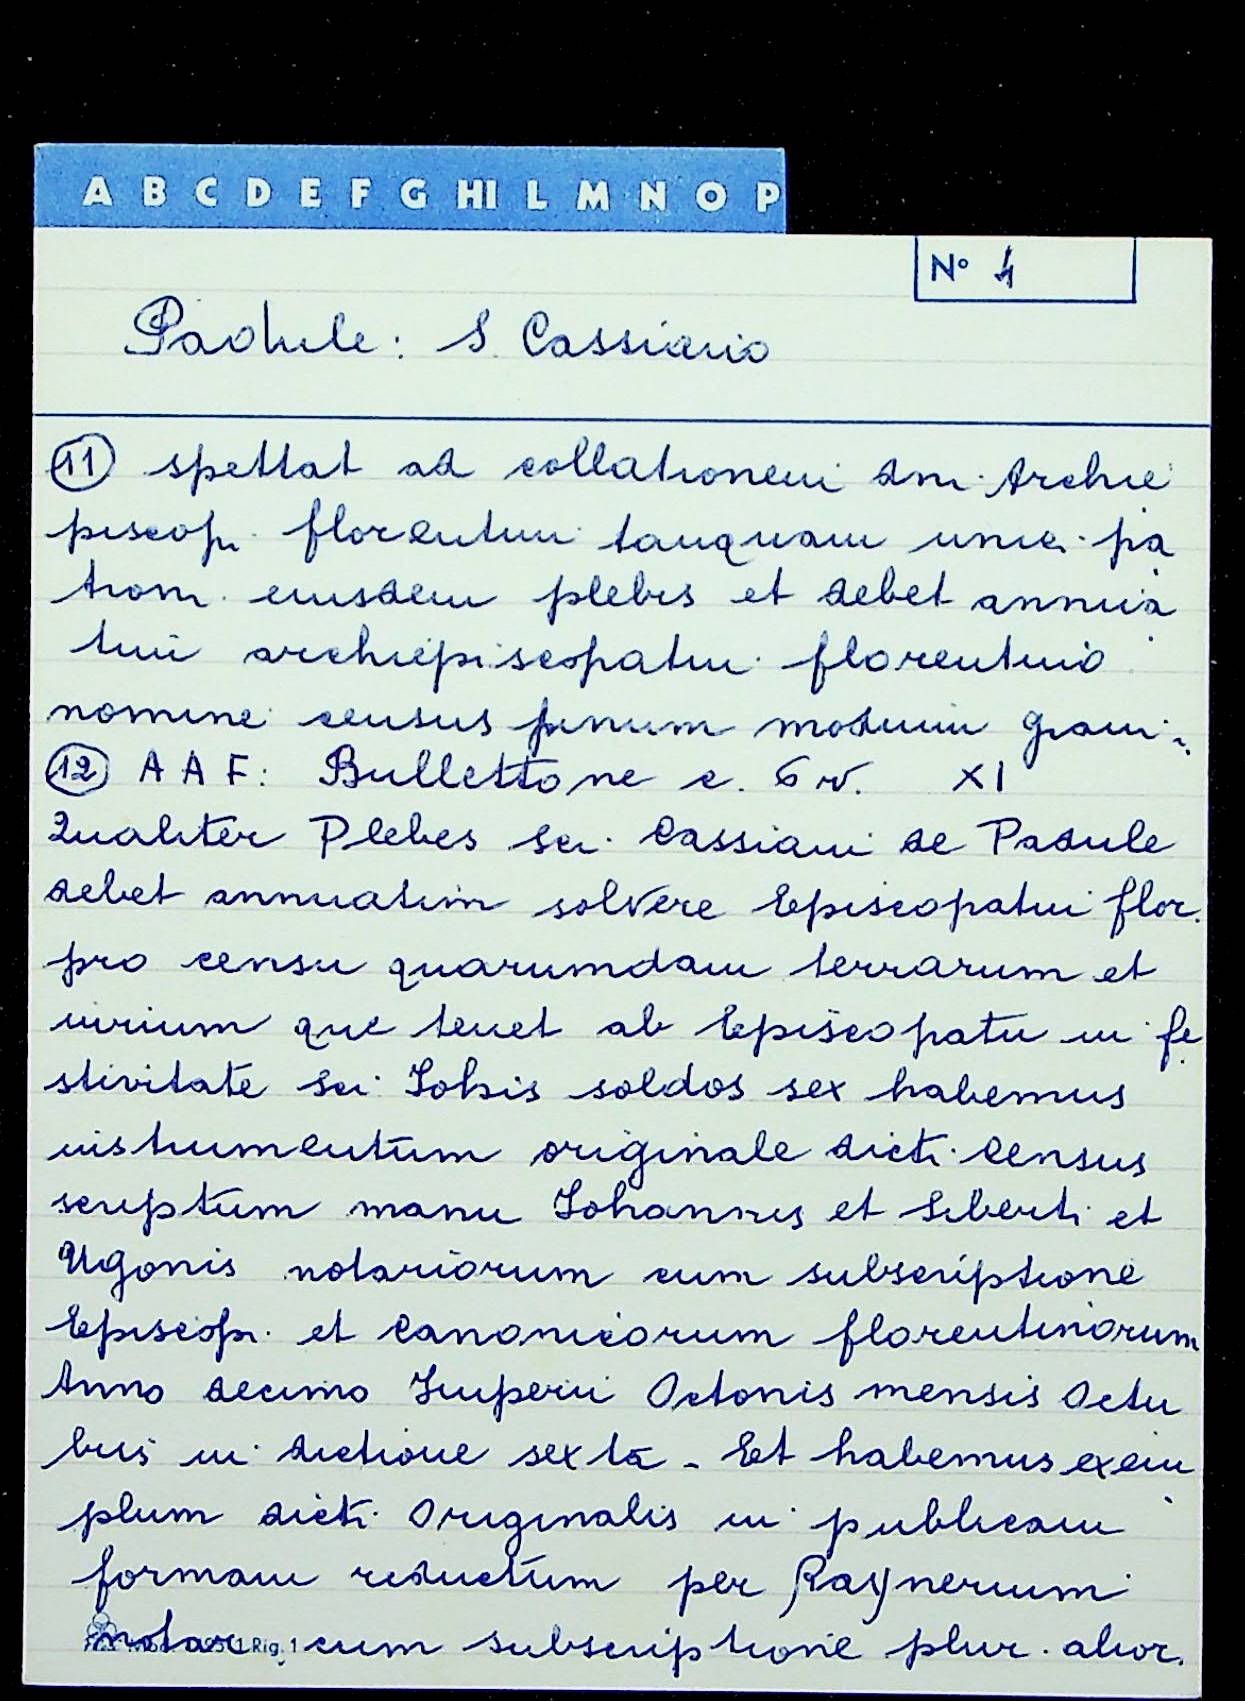 A B C D E F G HI L M N O P
N° 4
Padule: S. Cassiano
11 spettat ad collationem dni. Archie
piscopi florentini tanquam unici pa
troni eiusdem plebis et debet annua
tim archiepiscopatui florentino
nomine census unum modium grani.
12 A A F: Bullettone c. 6 v. XI
Qualiter Plebes sci. Cassiani de Padule
debet annuatim solvere Episcopatui flor.
pro censu quarumdam terrarum et
virium que tenet ab Episcopatu in fe
stivitate sci. Iohis soldos sex habemus
instrumentum originale dicti census
scriptum manu Iohannis et Siberti et
Ugonis notariorum cum subscriptione
Episcopi et canonicorum florentinorum
Anno decimo Imperii Octonis mensis Octu
bris in dictione sexta - Et habemus exem
plum dicti originalis in publicam
formam reductum per Raynerium
notar. cum subscriptione plur. alior.
Rig. 1